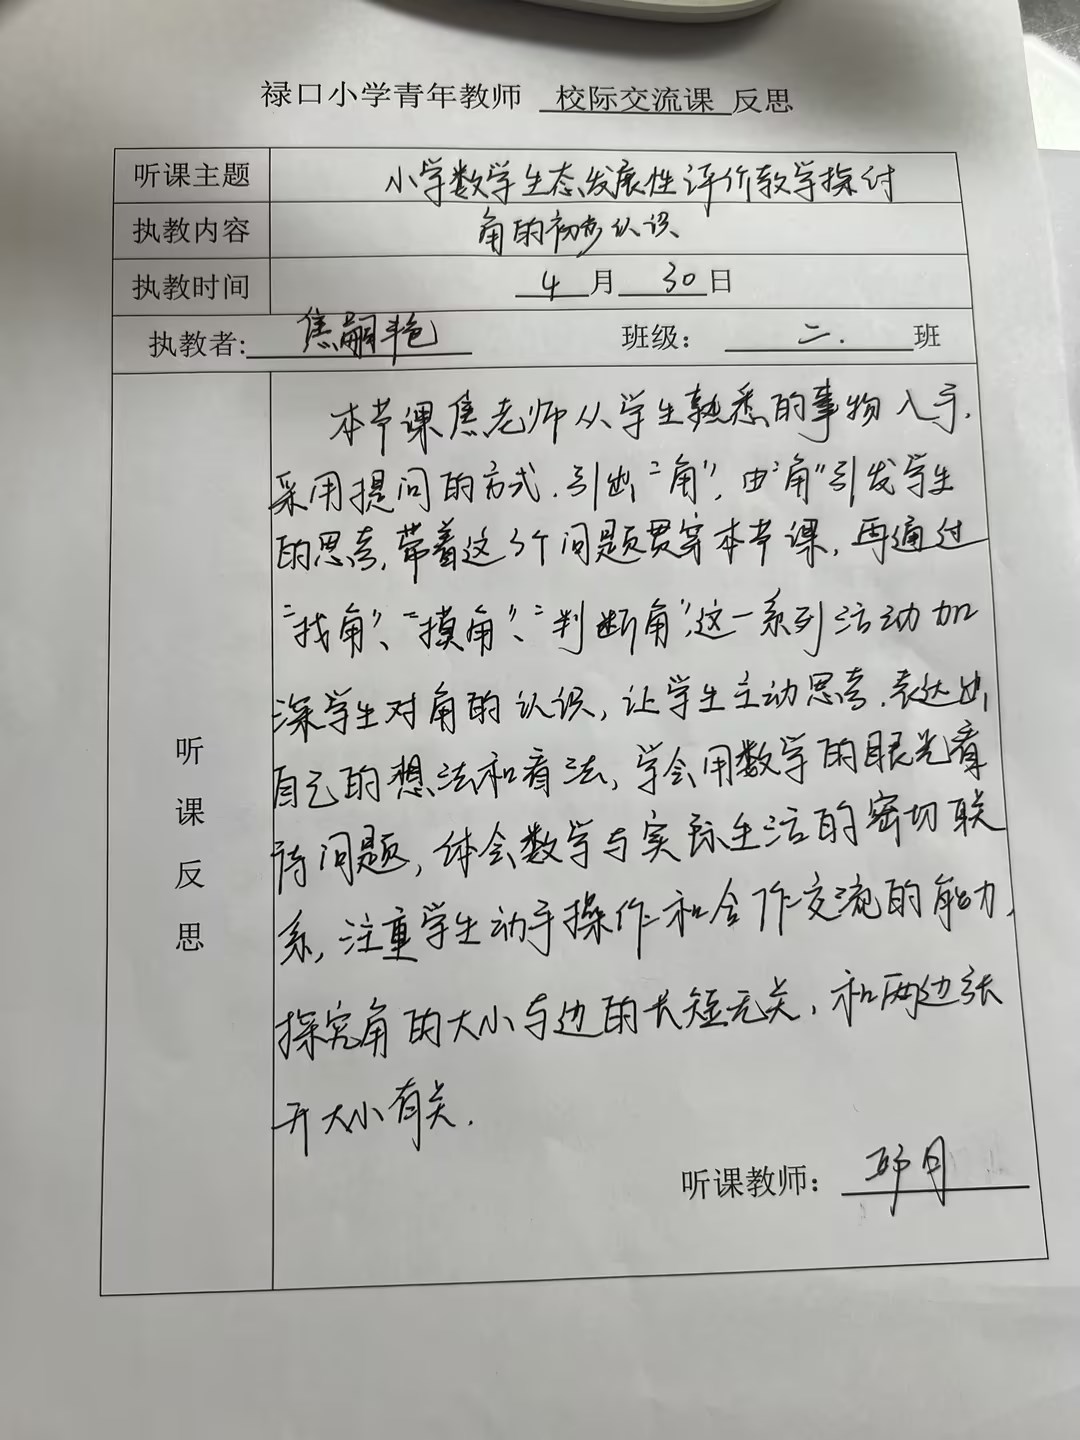 禄口小学青年教师 校际交流课 反思
听课主题 小学数学生态发展性评价教学探讨
执教内容 角的初步认识
执教时间 4月30日
执教者: 焦嗣艳 班级： 二. 班
本节课焦老师从学生熟悉的事物入手,
采用提问的方式.引出“角”,由“角”引发学生
的思考,带着这3个问题贯穿本节课,再通过
“找角”、“摸角”、“判断角”,这一系列活动加
深学生对角的认识,让学生主动思考.表达出
自己的想法和看法,学会用数学的眼光看
待问题,体会数学与实际生活的密切联
系,注重学生动手操作和合作交流的能力,
探究角的大小与边的长短无关,和两边张
开大小有关.
听课反思
听课教师： 月